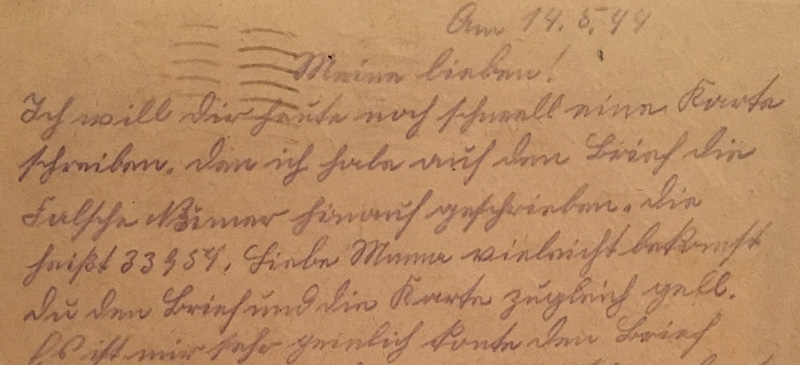 Am 14.5.44
Meine lieben!
Ich will dir heute noch schnell eine Karte
schreiben. den ich habe auf den Brief die
Falsche Numer hinauf geschrieben. die
heißt 33954. Liebe Mama vieleicht bekomst
du den Brief und die Karte zugleich gell.
Es ist mir sehr peinlich konte den Brief